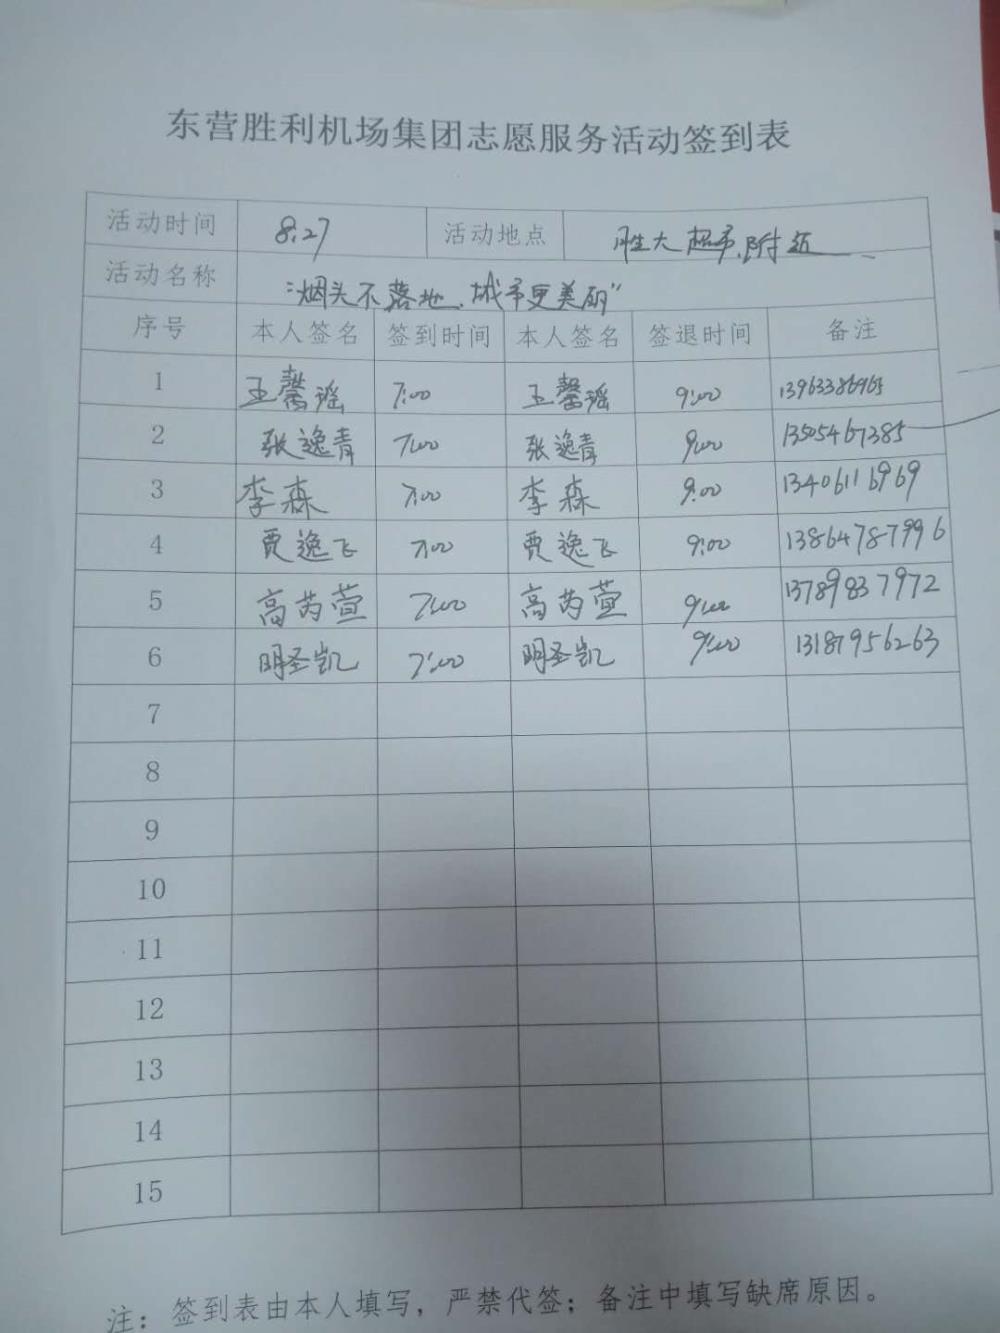 东营胜利机场集团志愿服务活动签到表
活动时间 8.27 活动地点 胜大超市附近
活动名称 "烟头不落地.城市更美丽"
序号 本人签名 签到时间 本人签名 签退时间 备注
1 王馨瑶 7:00 王馨瑶 9:00 13963386965
2 张逸青 7:00 张逸青 9:00 13505467385
3 李森 7:00 李森 9:00 13406116969
4 贾逸飞 7:00 贾逸飞 9:00 13864787996
5 高芮萱 7:00 高芮萱 9:00 13789837972
6 明圣凯 7:00 明圣凯 9:00 13187956263
7
8
9
10
11
12
13
14
15
注：签到表由本人填写，严禁代签；备注中填写缺席原因。